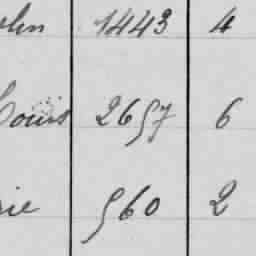 ohn 1443 4
Louis 2657 6
rie 560 2